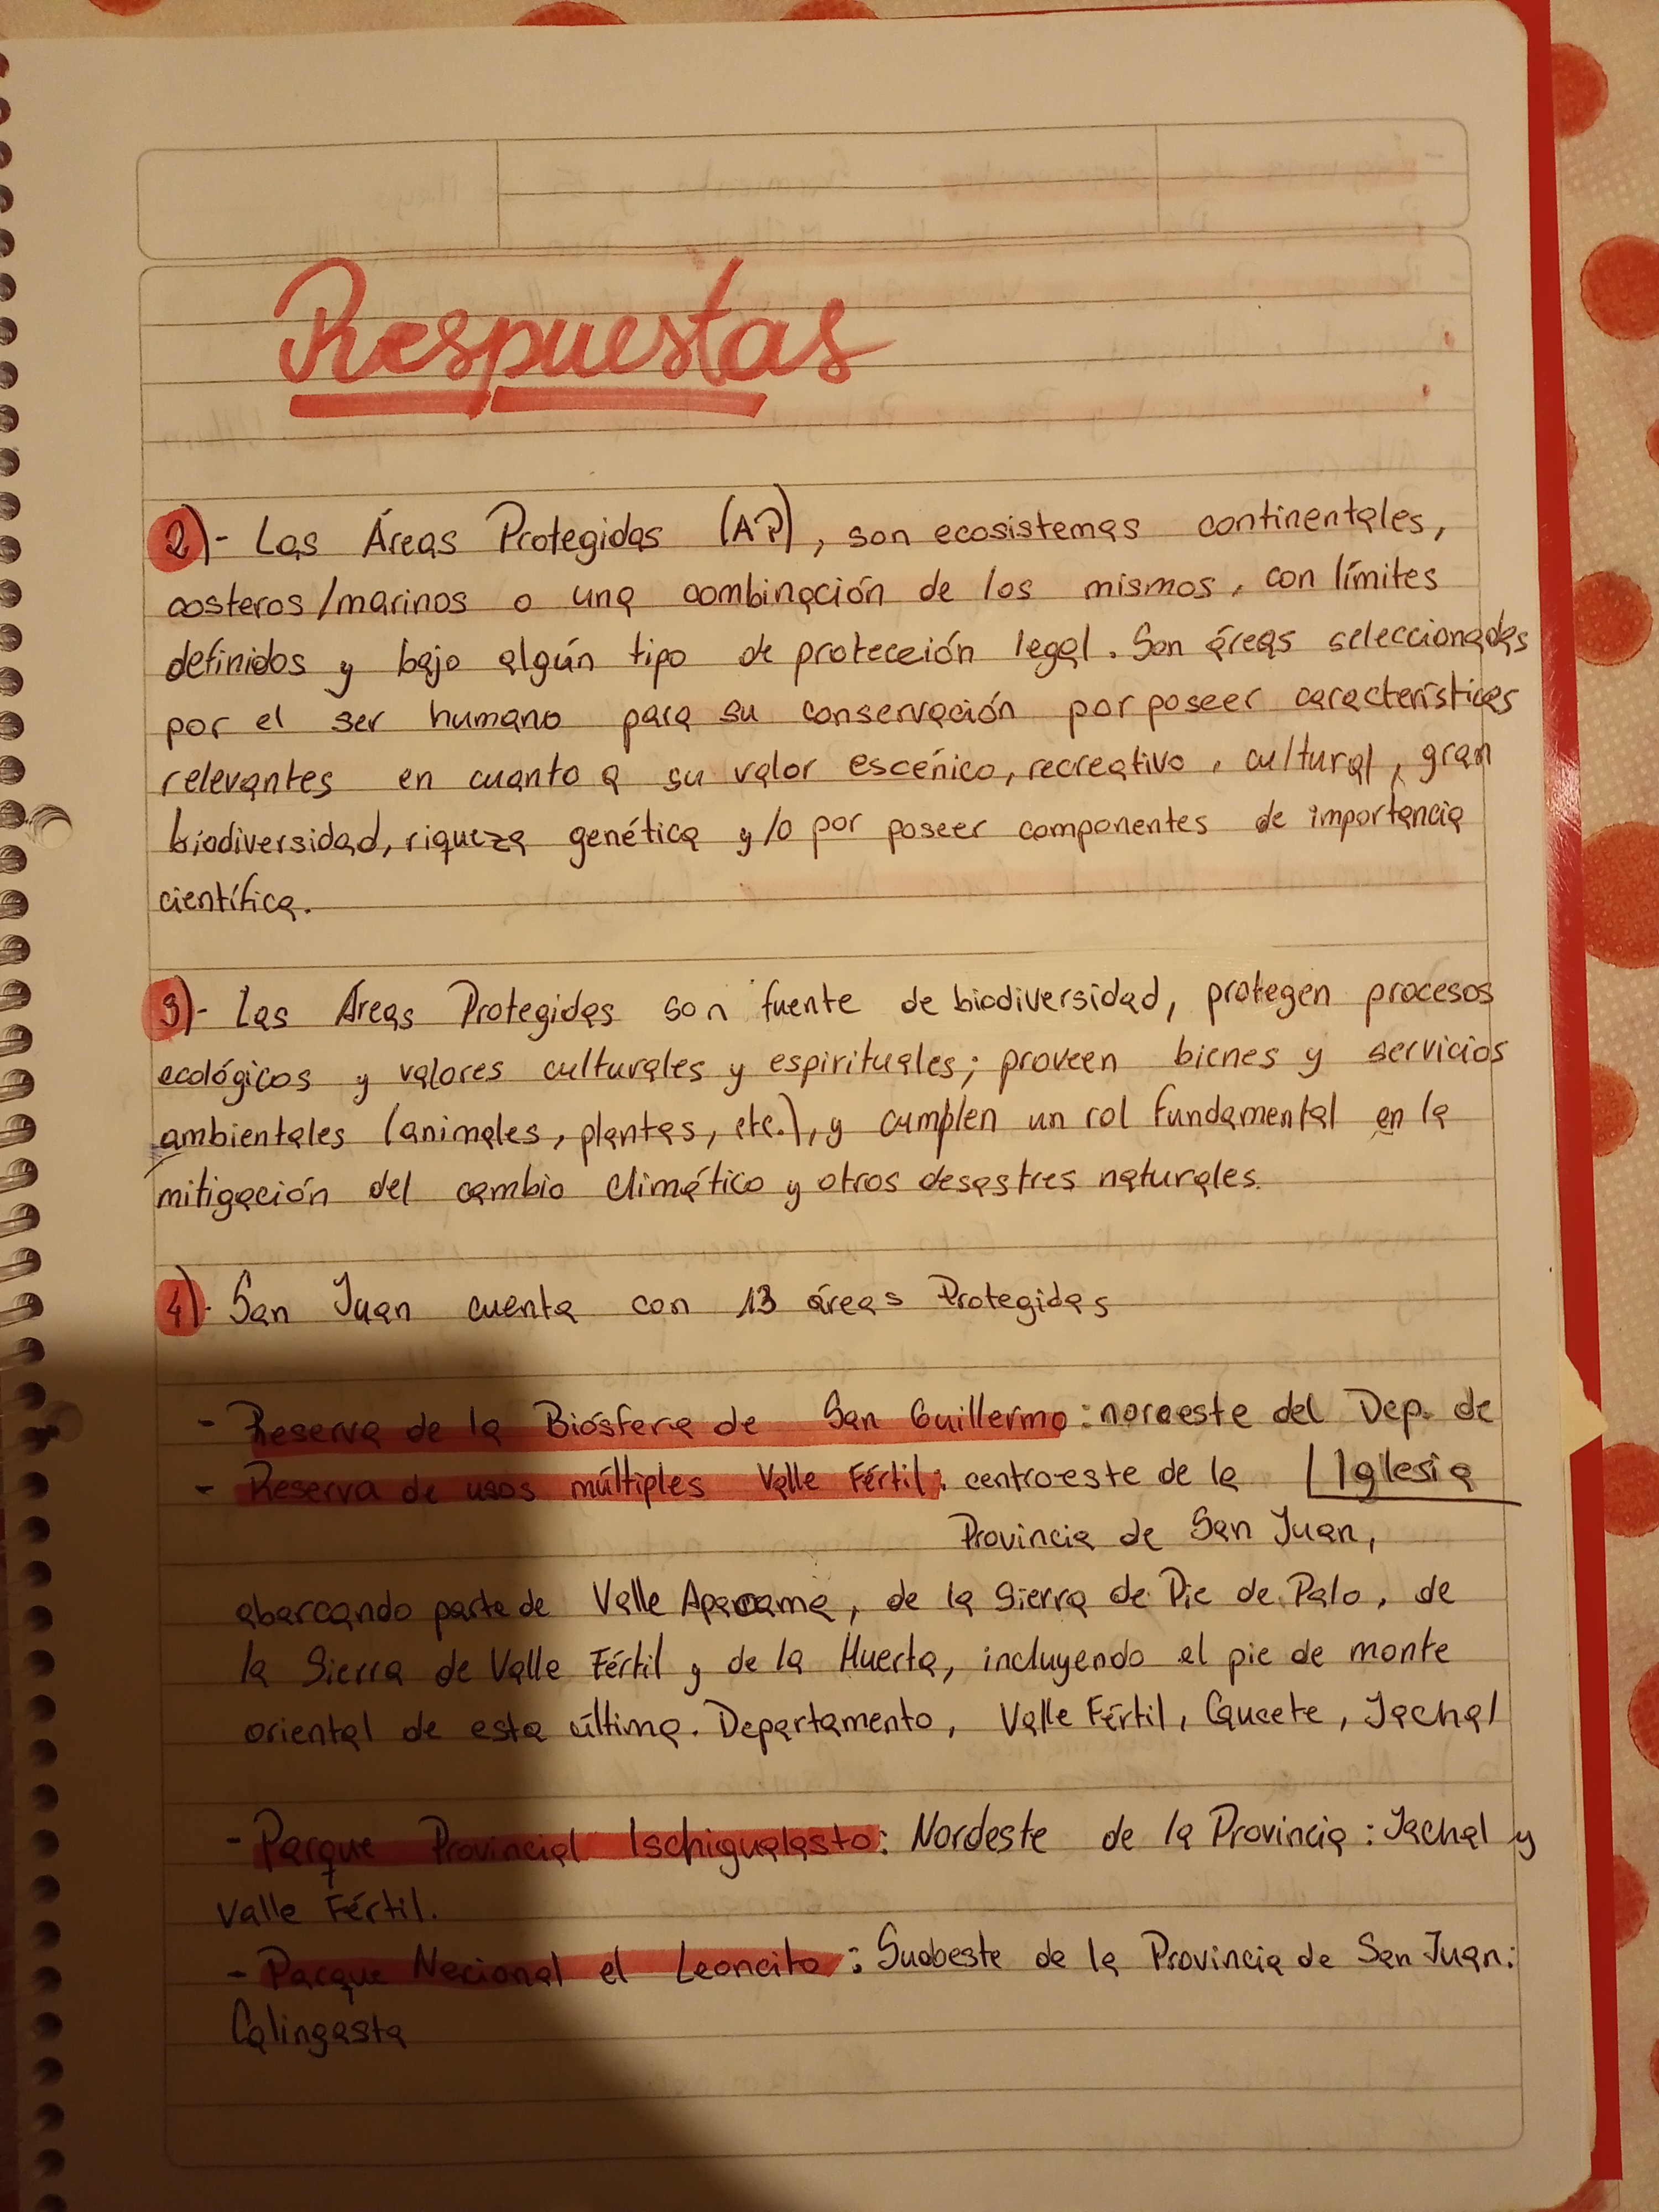 Respuestas
2)- Las Áreas Protegidas (AP), son ecosistemas continentales,
costeros/marinos o una combinación de los mismos, con límites
definidos y bajo algún tipo de protección legal. Son áreas seleccionadas
por el ser humano para su conservación por poseer características
relevantes en cuanto a su valor escénico, recreativo, cultural, gran
biodiversidad, riqueza genética y/o por poseer componentes de importancia
científica.
3)- Las Áreas Protegidas son fuente de biodiversidad, protegen procesos
ecológicos y valores culturales y espirituales; proveen bienes y servicios
ambientales (animales, plantas, etc.), y cumplen un rol fundamental en la
mitigación del cambio climático y otros desastres naturales.
4)- San Juan cuenta con 13 áreas Protegidas
- Reserva de la Biósfera de San Guillermo: noroeste del Dep. de
Iglesia
- Reserva de usos múltiples Valle Fértil: centro-este de la
Provincia de San Juan,
abarcando parte de Valle, de la Sierra de Pie de Palo, de
la Sierra de Valle Fértil y de la Huerta, incluyendo el pie de monte
oriental de esta última. Departamento, Valle Fértil, Caucete, Jachal
- Parque Provincial Ischigualasto: Nordeste de la Provincia: Jachal y
Valle Fértil.
- Parque Nacional el Leoncito: Sudoeste de la Provincia de San Juan:
Calingasta